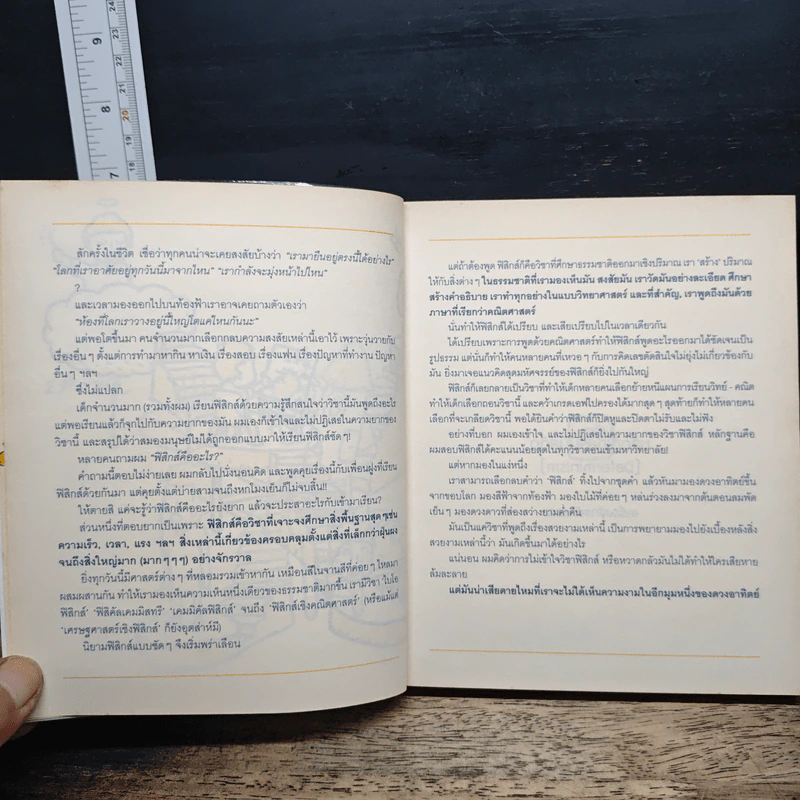 24
23
9
22
21
8
20
19
18
7
17
สักครั้งในชีวิต เชื่อว่าทุกคนน่าจะเคยสงสัยบ้างว่า "เรามายืนอยู่ตรงนี้ได้อย่างไร"
"โลกที่เราอาศัยอยู่ทุกวันนี้มาจากไหน" "เรากำลังจะมุ่งหน้าไปไหน"
?
และเวลามองออกไปบนท้องฟ้าเราอาจเคยถามตัวเองว่า
"ห้องที่โลกเราวางอยู่นี้ใหญ่โตแค่ไหนกันนะ"
แต่พอโตขึ้นมา คนจำนวนมากเลือกกลบความสงสัยเหล่านี้เอาไว้ เพราะวุ่นวายกับ
เรื่องอื่น ๆ ตั้งแต่ การทำมาหากิน หาเงิน เรื่องสอบ เรื่องแฟน เรื่องปัญหาที่ทำงาน ปัญหา
อื่น ๆ ฯลฯ
ซึ่งไม่แปลก
เด็กจำนวนมาก (รวมทั้งผม) เรียนฟิสิกส์ด้วยความรู้สึกสนใจว่าวิชานี้มันพูดถึงอะไร
แต่พอเรียนแล้วก็จุกไปกับความยากของมัน ผมเองก็เข้าใจและไม่ปฏิเสธในความยากของ
วิชานี้ และสรุปได้ว่าสมองมนุษย์ไม่ได้ถูกออกแบบมาให้เรียนฟิสิกส์ชัด ๆ!
หลายคนถามผม "ฟิสิกส์คืออะไร?"
คำถามนี้ตอบไม่ง่ายเลย ผมกลับไปนั่งนอนคิด และพูดคุยเรื่องนี้กับเพื่อนฝูงที่เรียน
ฟิสิกส์ด้วยกันมา แต่คุยตั้งแต่บ่ายสามจนถึงหกโมงเย็นก็ไม่จบสิ้น!!
ให้ตายสิ แค่จะรู้ว่าฟิสิกส์คืออะไรยังยาก แล้วจะประสาอะไรกับเข้ามาเรียน?
ส่วนหนึ่งที่ตอบยากเป็นเพราะ ฟิสิกส์คือวิชาที่เจาะจงศึกษาสิ่งพื้นฐานสุด ๆ เช่น
ความเร็ว, เวลา, แรง ฯลฯ สิ่งเหล่านี้เกี่ยวข้องครอบคลุมตั้งแต่สิ่งที่เล็กกว่าฝุ่นผง
จนถึงสิ่งใหญ่มาก (มาก ๆ ๆ ๆ) อย่างจักรวาล
ยิ่งทุกวันนี้มีศาสตร์ต่าง ๆ ที่หลอมรวมเข้าหากัน เหมือนสีในจานสีที่ค่อย ๆ ไหลมา
ผสมผสานกัน ทำให้เรามองเห็นความเป็นหนึ่งเดียวของธรรมชาติมากขึ้น เรามีวิชา 'ไบโอ
ฟิสิกส์' 'ฟิสิคัลเคมมิสทรี' 'เคมมิคัลฟิสิกส์' จนถึง 'ฟิสิกส์เชิงคณิตศาสตร์' (หรือแม้แต่
'เศรษฐศาสตร์เชิงฟิสิกส์' ก็ยังอุตส่าห์มี)
นิยามฟิสิกส์แบบชัด ๆ จึงเริ่มพร่าเลือน
แต่ถ้าต้องพูด ฟิสิกส์ก็คือวิชาที่ศึกษาธรรมชาติออกมาเชิงปริมาณ เรา 'สร้าง' ปริมาณ
ให้กับสิ่งต่าง ๆ ในธรรมชาติที่เรามองเห็นมัน สงสัยมัน เราวัดมันอย่างละเอียด ศึกษา
สร้างคำอธิบาย เราทำทุกอย่างในแบบวิทยาศาสตร์ และที่สำคัญ, เราพูดถึงมันด้วย
ภาษาที่เรียกว่าคณิตศาสตร์
นั่นทำให้ฟิสิกส์ได้เปรียบ และเสียเปรียบไปในเวลาเดียวกัน
ได้เปรียบเพราะการพูดด้วยคณิตศาสตร์ทำให้ฟิสิกส์พูดอะไรออกมาได้ชัดเจนเป็น
รูปธรรม แต่นั่นก็ทำให้คนหลายคนที่เหวอ ๆ กับการคิดเลขตัดสินใจไม่ยุ่งไม่เกี่ยวข้องกับ
มัน ยิ่งมาเจอแนวคิดสุดมหัศจรรย์ของฟิสิกส์ก็ยิ่งไปกันใหญ่
ฟิสิกส์ก็เลยกลายเป็นวิชาที่ทำให้เด็กหลายคนเลือกย้ายหนีแผนการเรียนวิทย์ - คณิต
ทำให้เด็กเลือกถอนวิชานี้ และคว้าเกรดเอฟไปครองได้มากสุด ๆ สุดท้ายก็ทำให้หลายคน
เลือกที่จะเกลียดวิชานี้ พอได้ยินคำว่าฟิสิกส์ก็ปิดหูและปิดตาไม่รับและไม่ฟัง
อย่างที่บอก ผมเองเข้าใจ และไม่ปฏิเสธในความยากของวิชาฟิสิกส์ หลักฐานคือ
ผมสอบฟิสิกส์ได้คะแนนน้อยสุดในทุกวิชาตอนเข้ามหาวิทยาลัย!
แต่หากมองในแง่หนึ่ง
เราสามารถเลือกกลบคำว่า 'ฟิสิกส์' ทิ้งไปจากชุดคำ แล้วหันมามองดวงอาทิตย์ขึ้น
จากขอบโลก มองสีฟ้าจากท้องฟ้า มองใบไม้ที่ค่อย ๆ หล่นร่วงลงมาจากต้นตอนลมพัด
เย็น ๆ มองดวงดาวที่ส่องสว่างยามค่ำคืน
มันเป็นแค่วิชาที่พูดถึงเรื่องสวยงามเหล่านี้ เป็นการพยายามมองไปยังเบื้องหลังสิ่ง
สวยงามเหล่านี้ว่า มันเกิดขึ้นมาได้อย่างไร
แน่นอน ผมคิดว่าการไม่เข้าใจวิชาฟิสิกส์ หรือหวาดกลัวมันไม่ได้ทำให้ใครเสียหาย
ล้มละลาย
แต่มันน่าเสียดายไหมที่เราจะไม่ได้เห็นความงามในอีกมุมหนึ่งของดวงอาทิตย์